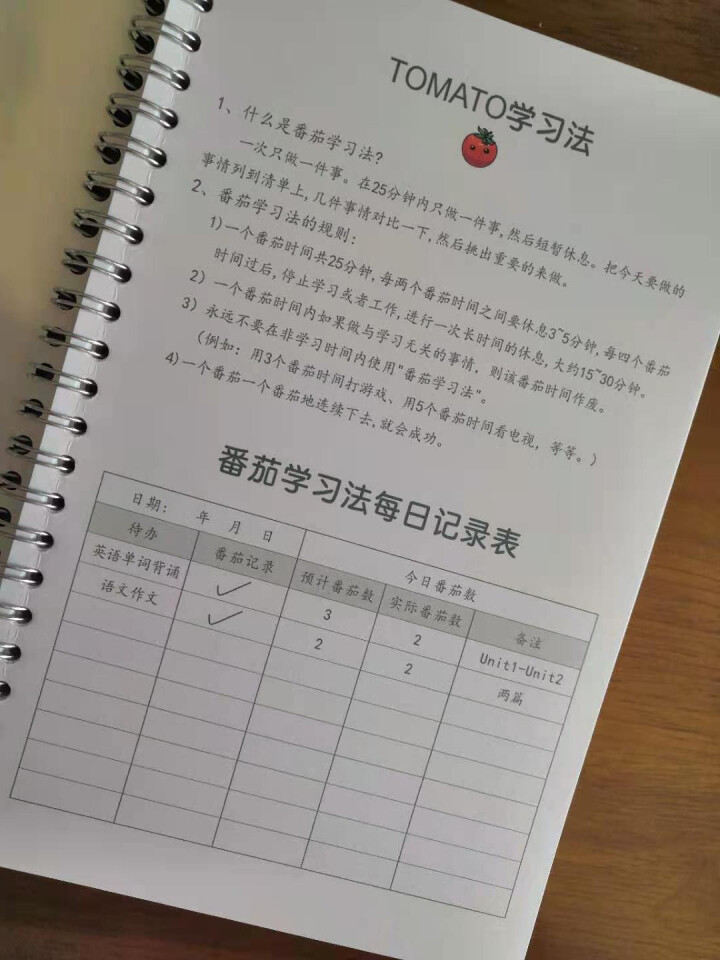 TOMATO学习法
1、什么是番茄学习法?
一次只做一件事。在25分钟内只做一件事,然后短暂休息。把今天要做的
事情列到清单上,几件事情对比一下,然后挑出重要的来做。
2、番茄学习法的规则:
1)一个番茄时间共25分钟,每两个番茄时间之间要休息3~5分钟,每四个番茄
时间过后,停止学习或者工作,进行一次长时间的休息,大约15~30分钟。
2) 一个番茄时间内如果做与学习无关的事情, 则该番茄时间作废。
3) 永远不要在非学习时间内使用"番茄学习法"。
(例如: 用3个番茄时间打游戏、用5个番茄时间看电视, 等等。)
4)一个番茄一个番茄地连续下去,就会成功。
番茄学习法每日记录表
日期: 年 月 日 今日番茄数
待办 番茄记录 预计番茄数 实际番茄数 备注
英语单词背诵 ✓ 3 2 Unit1-Unit2
语文作文 ✓ 2 2 两篇